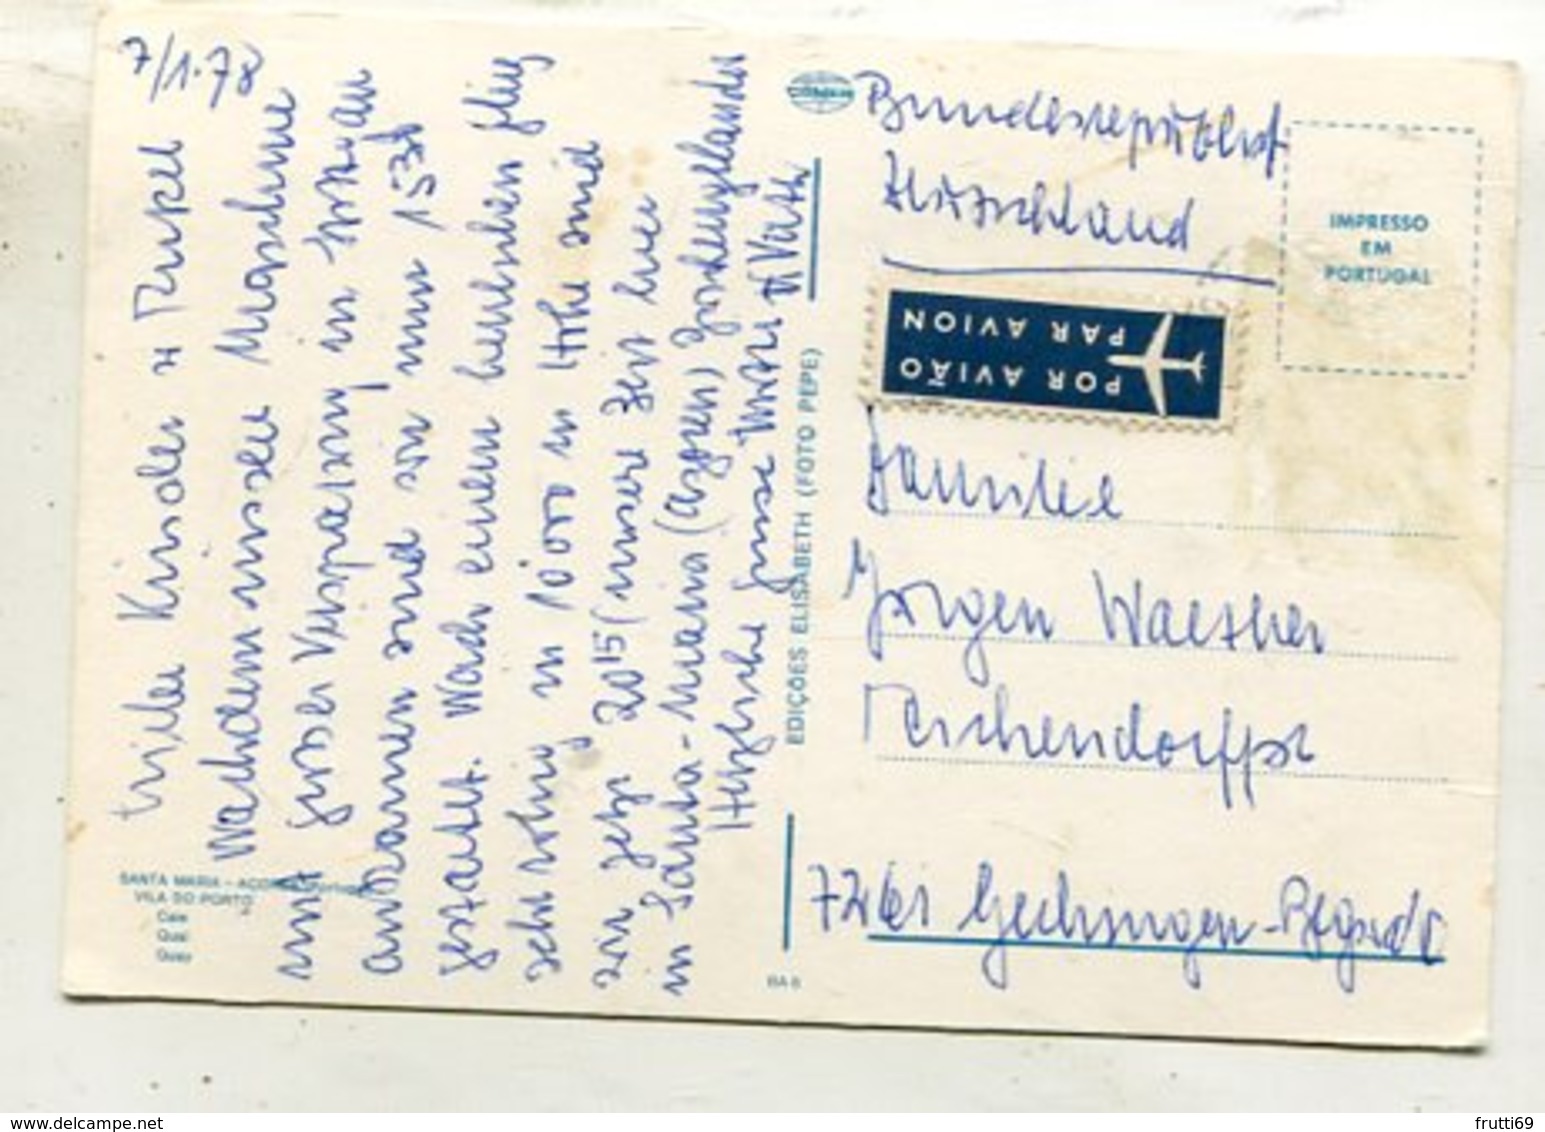 7/1.78
Liebe Kinder u Enkel
Nachdem unsere Maschine
mit grosser Verspätung in
ankommen sind wir nun 153h
gestartet. Nach einem herrlichen Flug
sehr ruhig in 10000 m Höhe sind
wir jetzt 20 15 (unsere Zeit hier
in Santa-Maria (Azoren) zwischengelandet
Herzliche Grüsse u Vati
SANTA MARIA - AÇORES (Portugal)
VILA DO PORTO
Cais
Quai
Quay
EDIÇOES ELISABETH (FOTO PEPE)
BA 8
Bundesrepublik
Deutschland
IMPRESSO
EM
PORTUGAL
POR AVIÃO
PAR AVION
Familie
Jürgen Waesther
7261 Gechingen-Bergwald
frutti69
delcampe.net